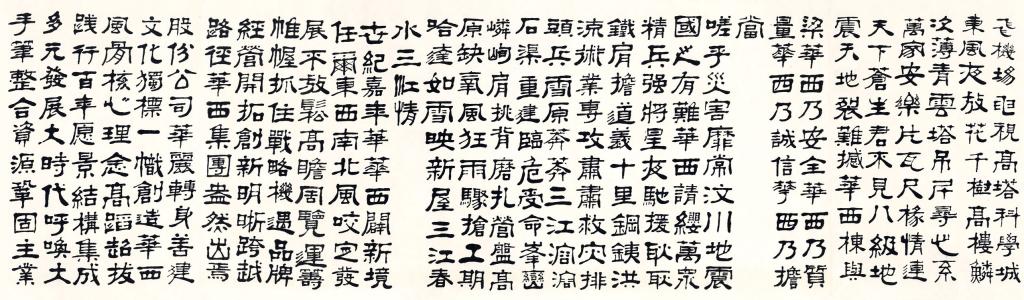 飞機場視高塔科學城
東風夜放花千樹高樓鱗
次薄青雲塔吊尋心系
萬家安樂片瓦尺椽情連
天下蒼生君不見八級地
震天地裂難撼華西棟與
梁華西乃安全華西乃質
量華西乃誠信華西乃擔
當
嗟乎災害靡常汶川地震
國之有難華西請纓萬眾
精兵强將星夜馳援耿耿
鐵肩擔道義十里鋼鐵洪
流術業專攻肅肅救灾排
頭兵雪原莽莽三江滔滔
石渠重建臨危受命峯巒
嶙峋肩挑背磨扎營盤高
原缺氧風狂雨驟搶工期
哈達如雪映新屋三江春
水三江情
世紀嘉年華華西闢新境
任爾東西南北風咬定發
展不放鬆高瞻周覽運籌
帷幄抓住戰略機遇品牌
經營開拓創新明晰跨越
路徑華西集團盎然出焉
股份公司華麗轉身善建
文化獨標一幟創造華西
風骨核心理念高蹈超拔
践行百年愿景結構集成
多元發展大時代呼喚大
手筆整合資源鞏固主業